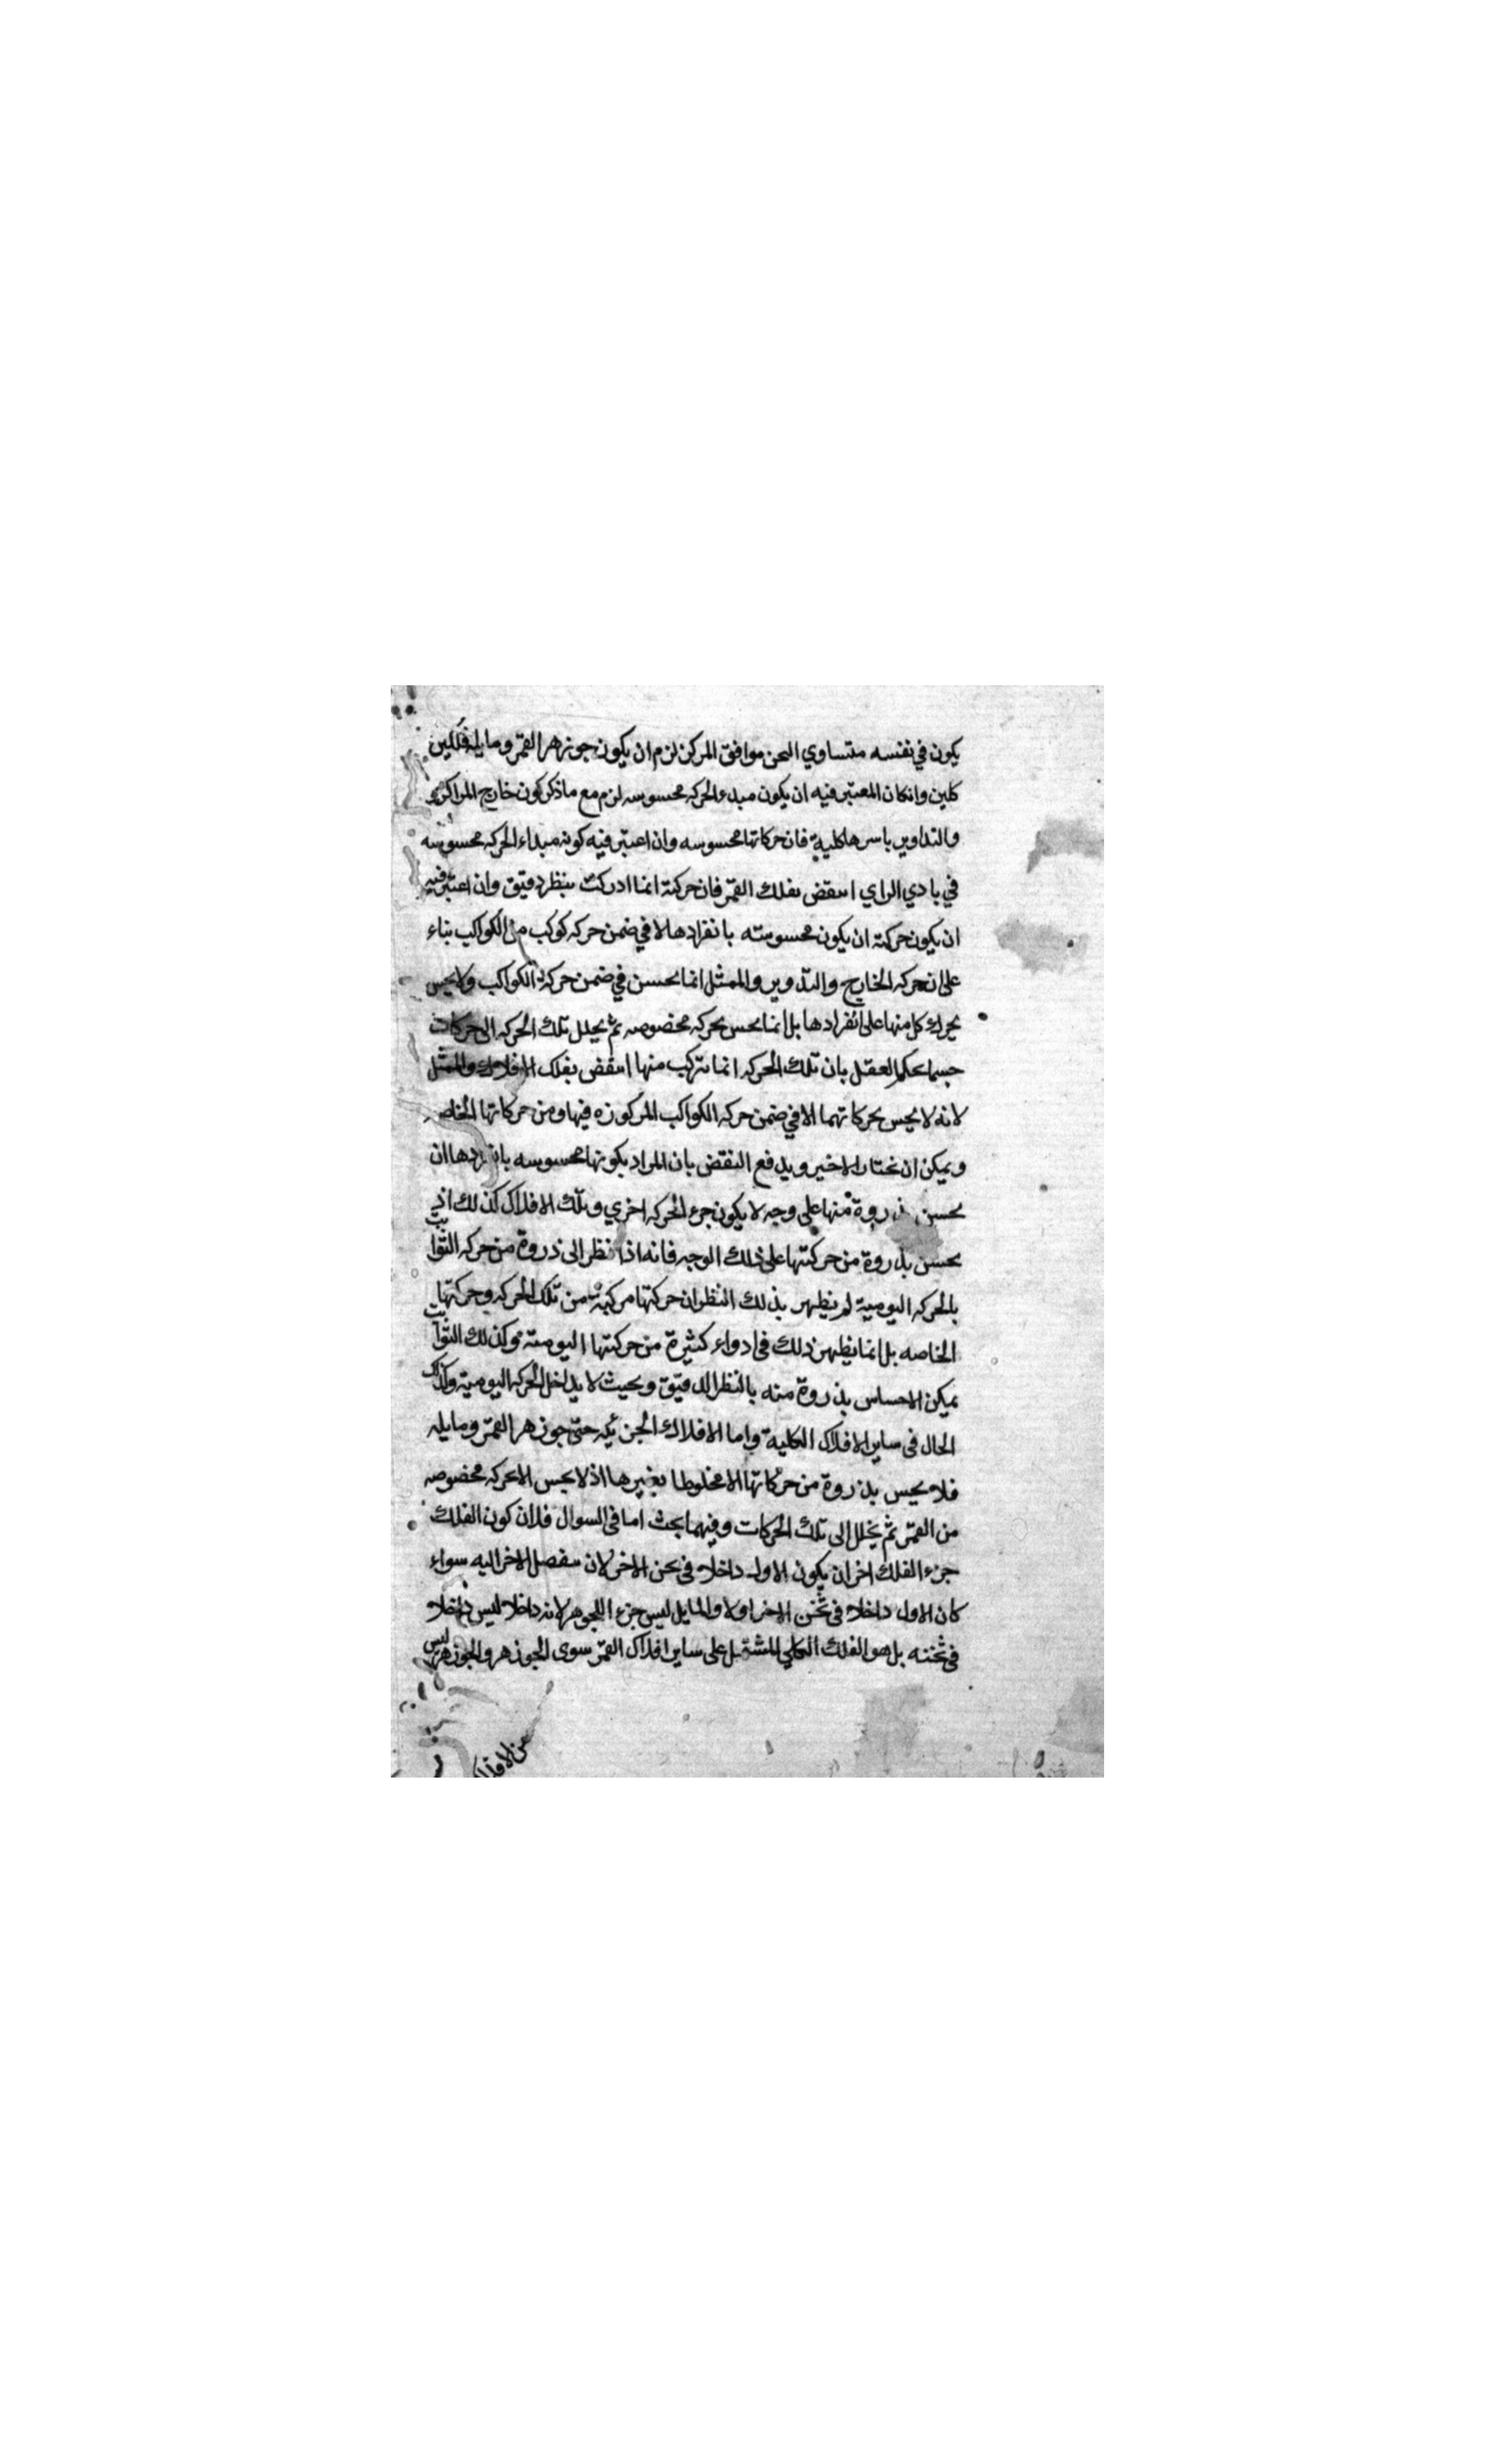 يكون في نفسه متساوي الثخن موافق المركز لزم ان يكون جوزهر القمر ومايله فلكين
كلين وانكان المعتبر فيه ان يكون مبدء لحركه محسوسه لزم مع ما ذكر كون خارج المراكز
والتداوير باسرها كلية فان حركاتها محسوسه وان اعتبر فيه كونه مبداء لحركه محسوسه
في بادي الراي انتقض بفلك القمر فان حركته انما ادركت بنظر دقيق وان اعتبر فيه
ان يكون حركته ان يكون محسوسته بانفرادها لا في ضمن حركه كوكب من الكواكب بناء
على ان حركه الخارج والتدوير والممثل انما يحسن في ضمن حركة الكواكب ولا يحس
بحركه كل منها على انفرادها بل انما يحس بحركه مخصوصه ثم يحلل تلك الحركه الى حركات
حسبما يحكم العقل بان تلك الحركه انما تتركب منها انتقض بفلك الافلاك والممثل
لانه لا يحس بحركاتهما الا في ضمن حركه الكواكب المركوزه فيها ومن حركاتها الخاصه
ويمكن ان نختار الاخير ويدفع النقض بان المراد بكونها محسوسه بانفردها ان
يحسن ذروة منها على وجه لا يكون جزء لحركه اخري وتلك الافلاك كذلك اذ
يحسن بذروة من حركتها على ذلك الوجه فانه اذا نظر الى ذروة من حركه الثوابت
بالحركه اليوميه لم يظهر بذلك النظر ان حركتها مركبة من تلك الحركه وحركتها
الخاصه بل انما يظهر ذلك في ادواء كثيرة من حركتها اليومته وكذلك الثوابت
يمكن الاحساس بذروة منه بالنظر الدقيق وبحيث لا يداخل الحركه اليوميه وكذلك
الحال فى ساير الافلاك الكلية واما الافلاك الجزئيه حتى جوزهر القمر ومايله
فلا يحس بذروة من حركاتها الا مخلوطا بغيرها اذ لا يحس الا بحركه مخصوصه
من القمر ثم يحلل الى تلك الحركات وفيهما بحث اما فى السوال فلان كون الفلك
جزء الفلك اخر ان يكون الاول داخلا فى ثخن الاخر لا ان ينفصل الاخر اليه سواء
كان الاول داخلا فى ثخن الاخر اولا والمايل ليس جزء اللجوزهر لانه داخلا ليس داخلا
فى ثخنه بل هو الفلك الكلي المشتمل على ساير افلاك القمر سوى الجوزهر والجوزهر ليس